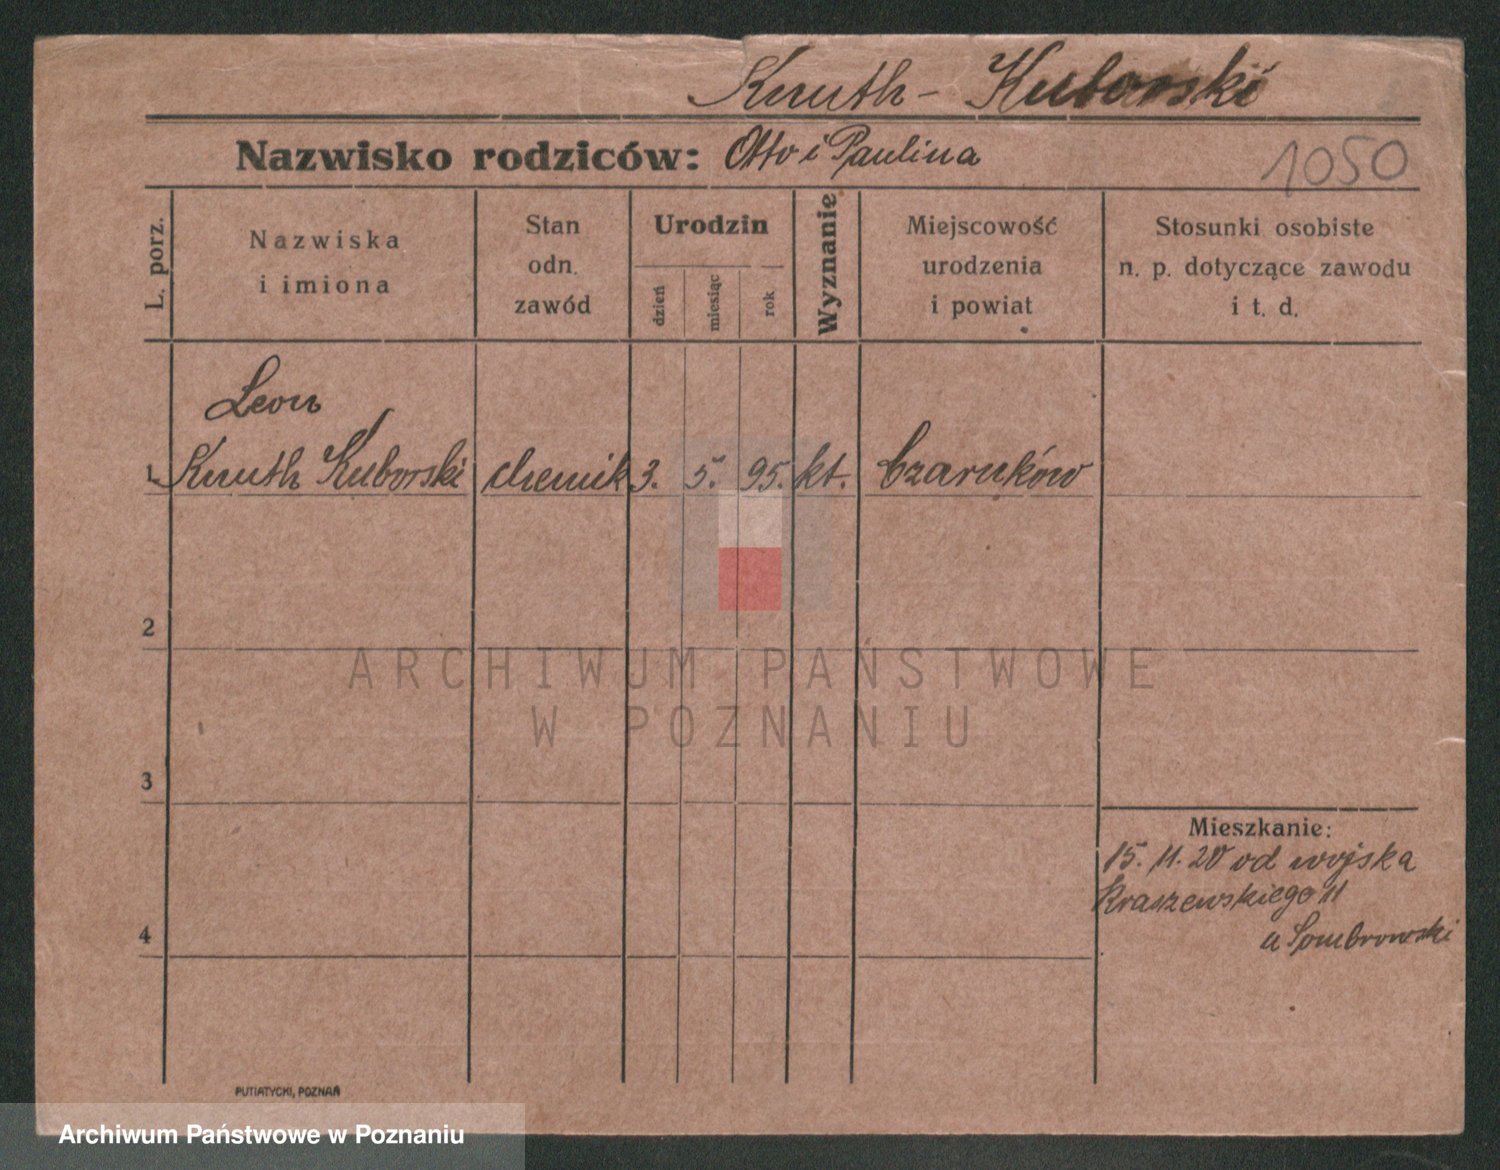 Knuth - Kuborski
Nazwisko rodziców: Otto i Paulina
1050
L. porz.
Nazwiska
i imiona
Stan
odn.
zawód
Urodzin
dzień
miesiąc
rok
Wyznanie
Miejscowość
urodzenia
i powiat
Stosunki osobiste
n. p. dotyczące zawodu
i t. d.
Leon
1 Knuth Kuborski chemik 3. 5. 95. kt. Czarnków
2
ARCHIWUM PAŃSTWOWE
W POZNANIU
3
Mieszkanie:
15. 11. 20 od wojska
Kraszewskiego 11
4
PUTIATYCKI, POZNAŃ
Archiwum Państwowe w Poznaniu